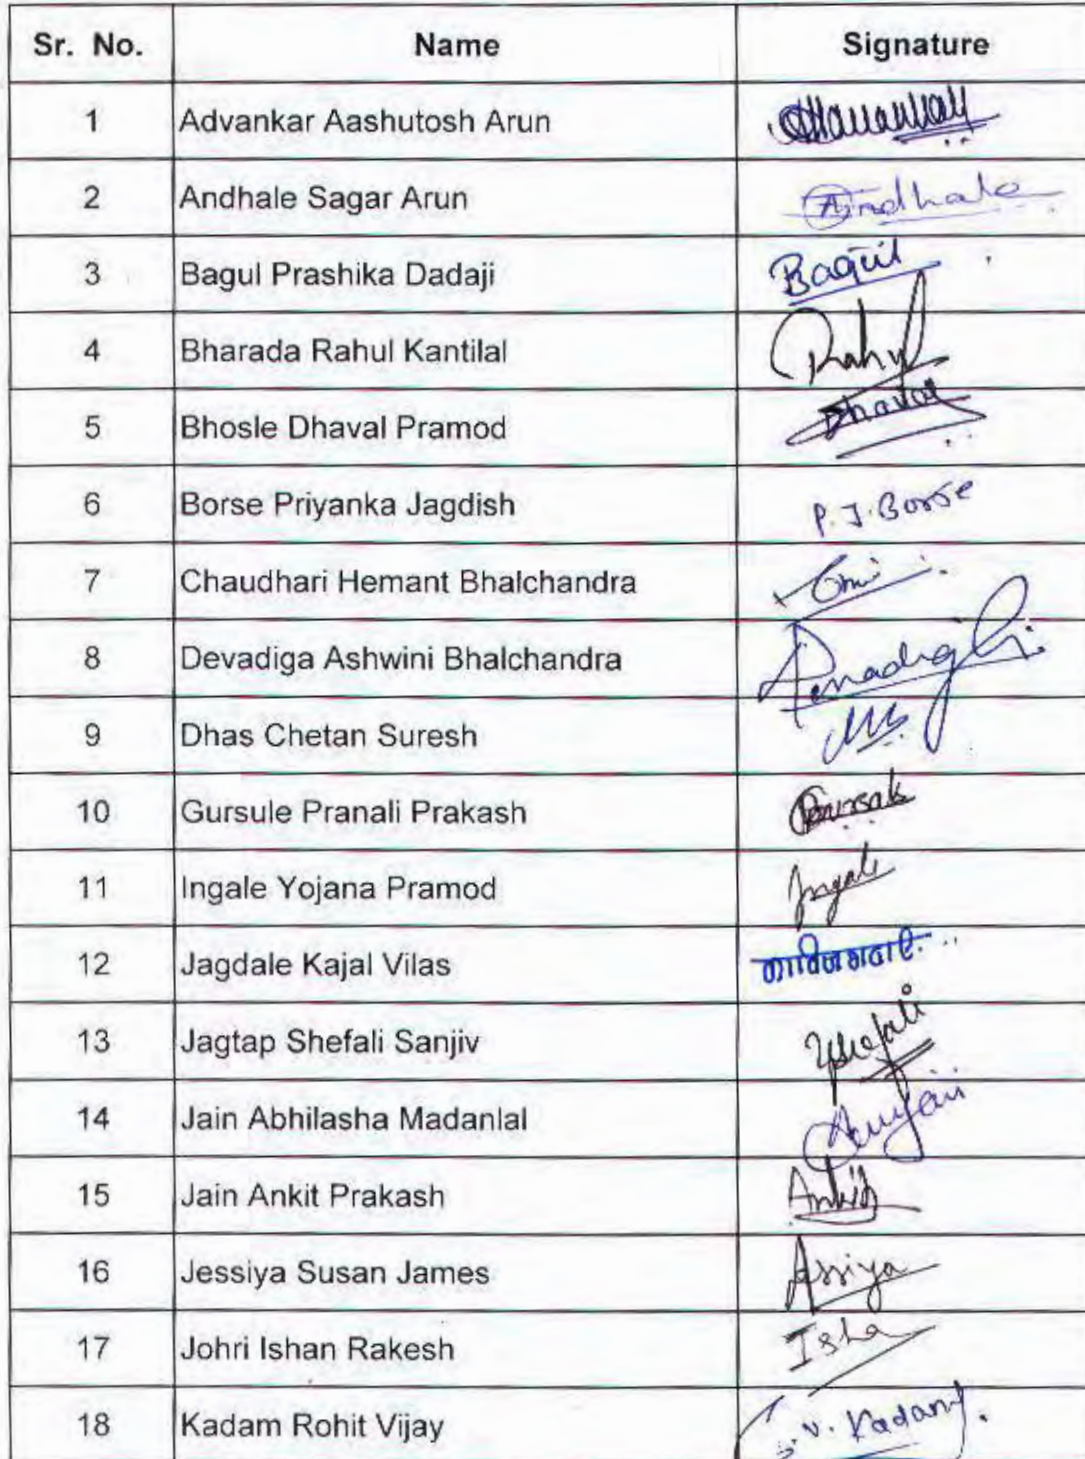 Sr. No. Name Signature
1 Advankar Aashutosh Arun
2 Andhale Sagar Arun Andhale
3 Bagul Prashika Dadaji Bagul
4 Bharada Rahul Kantilal Rahul
5 Bhosle Dhaval Pramod Dhaval
6 Borse Priyanka Jagdish P.J.Borse
7 Chaudhari Hemant Bhalchandra
8 Devadiga Ashwini Bhalchandra
9 Dhas Chetan Suresh
10 Gursule Pranali Prakash
11 Ingale Yojana Pramod Ingale
12 Jagdale Kajal Vilas
13 Jagtap Shefali Sanjiv Shefali
14 Jain Abhilasha Madanlal
15 Jain Ankit Prakash Ankit
16 Jessiya Susan James
17 Johri Ishan Rakesh Isha
18 Kadam Rohit Vijay v. Kadam